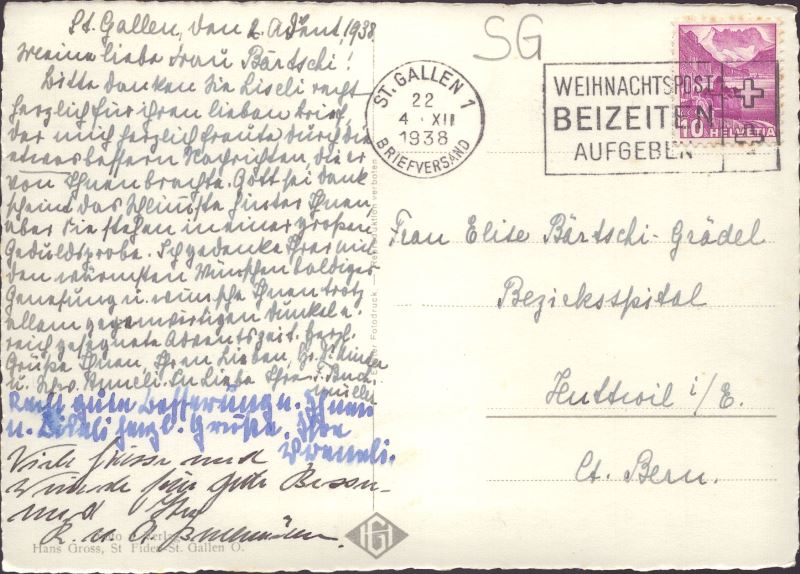 St. Gallen, den 2. Advent, 1938.
Meine liebe Frau Bärtschi!
Bitte danken Sie Liseli recht
herzlich für ihren lieben Brief,
der mich herzlich freute durch die
etwas bessern Nachrichten, die er
von Ihnen brachte. Gott sei Dank
scheint das Schlimmste hinter Ihnen,
aber Sie stehen in einer großen
Geduldsprobe. Ich gedenke Ihrer mit
den wärmsten Wünschen baldiger
Genesung u. wünsche Ihnen trotz
allem gegenwärtigen Dunkel e.
reich gesegnete Adventszeit. Herzl.
Grüße Ihnen, Ihren Lieben,
u. Schw. Anneli. In Liebe Ihre
Recht gute Besserung u. Ihnen
u. Liseli herzl. Grüße. Ihre
Vreneli.
Viele Grüsse und
Wünsche für gute Besse-
rung Ihr
Foto Verlag
Hans Gross, St Fiden-St. Gallen O.
Echter Fotodruck. — Reproduktion verboten
HG
SG
ST. GALLEN 1
22
4. XII
1938
BRIEFVERSAND
WEIHNACHTSPOST
BEIZEITEN
AUFGEBEN
10 HELVETIA
Frau Elise Bärtschi-Grädel
Bezirksspital
Huttwil i/E.
Ct. Bern.